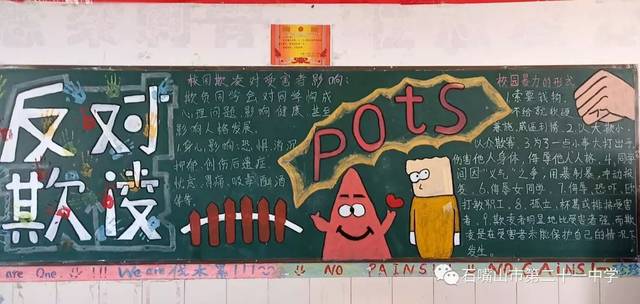 反对
欺凌
校园欺凌对受害者影响:
欺负同学会对同学构成
心理问题,影响健康,甚至
影响人格发展。
1.身心影响:恐惧、消沉
抑郁、创伤后遗症、
忧虑、胃痛、吸毒、酗酒
体等。
POtS
校园暴力的形式
1.索要钱物,
不给就软硬
兼施,威逼利诱。2.以大欺小,
以众欺寡。3.为了一点小事大打出手,
伤害他人身体,侮辱他人人格。4.同学
间因"义气"之争,用暴制暴,
6.侮辱女同学。7.侮辱、恐吓、
打教职工。8.孤立、杯葛或排挤受害
者。9.欺凌者明显地比受害者强,而欺
凌是在受害者未能保护自己的情况下
发生。
are One.
We are 伐木累!!!
NO PAINS!! NO GAINS!
石嘴山市第二十一中学